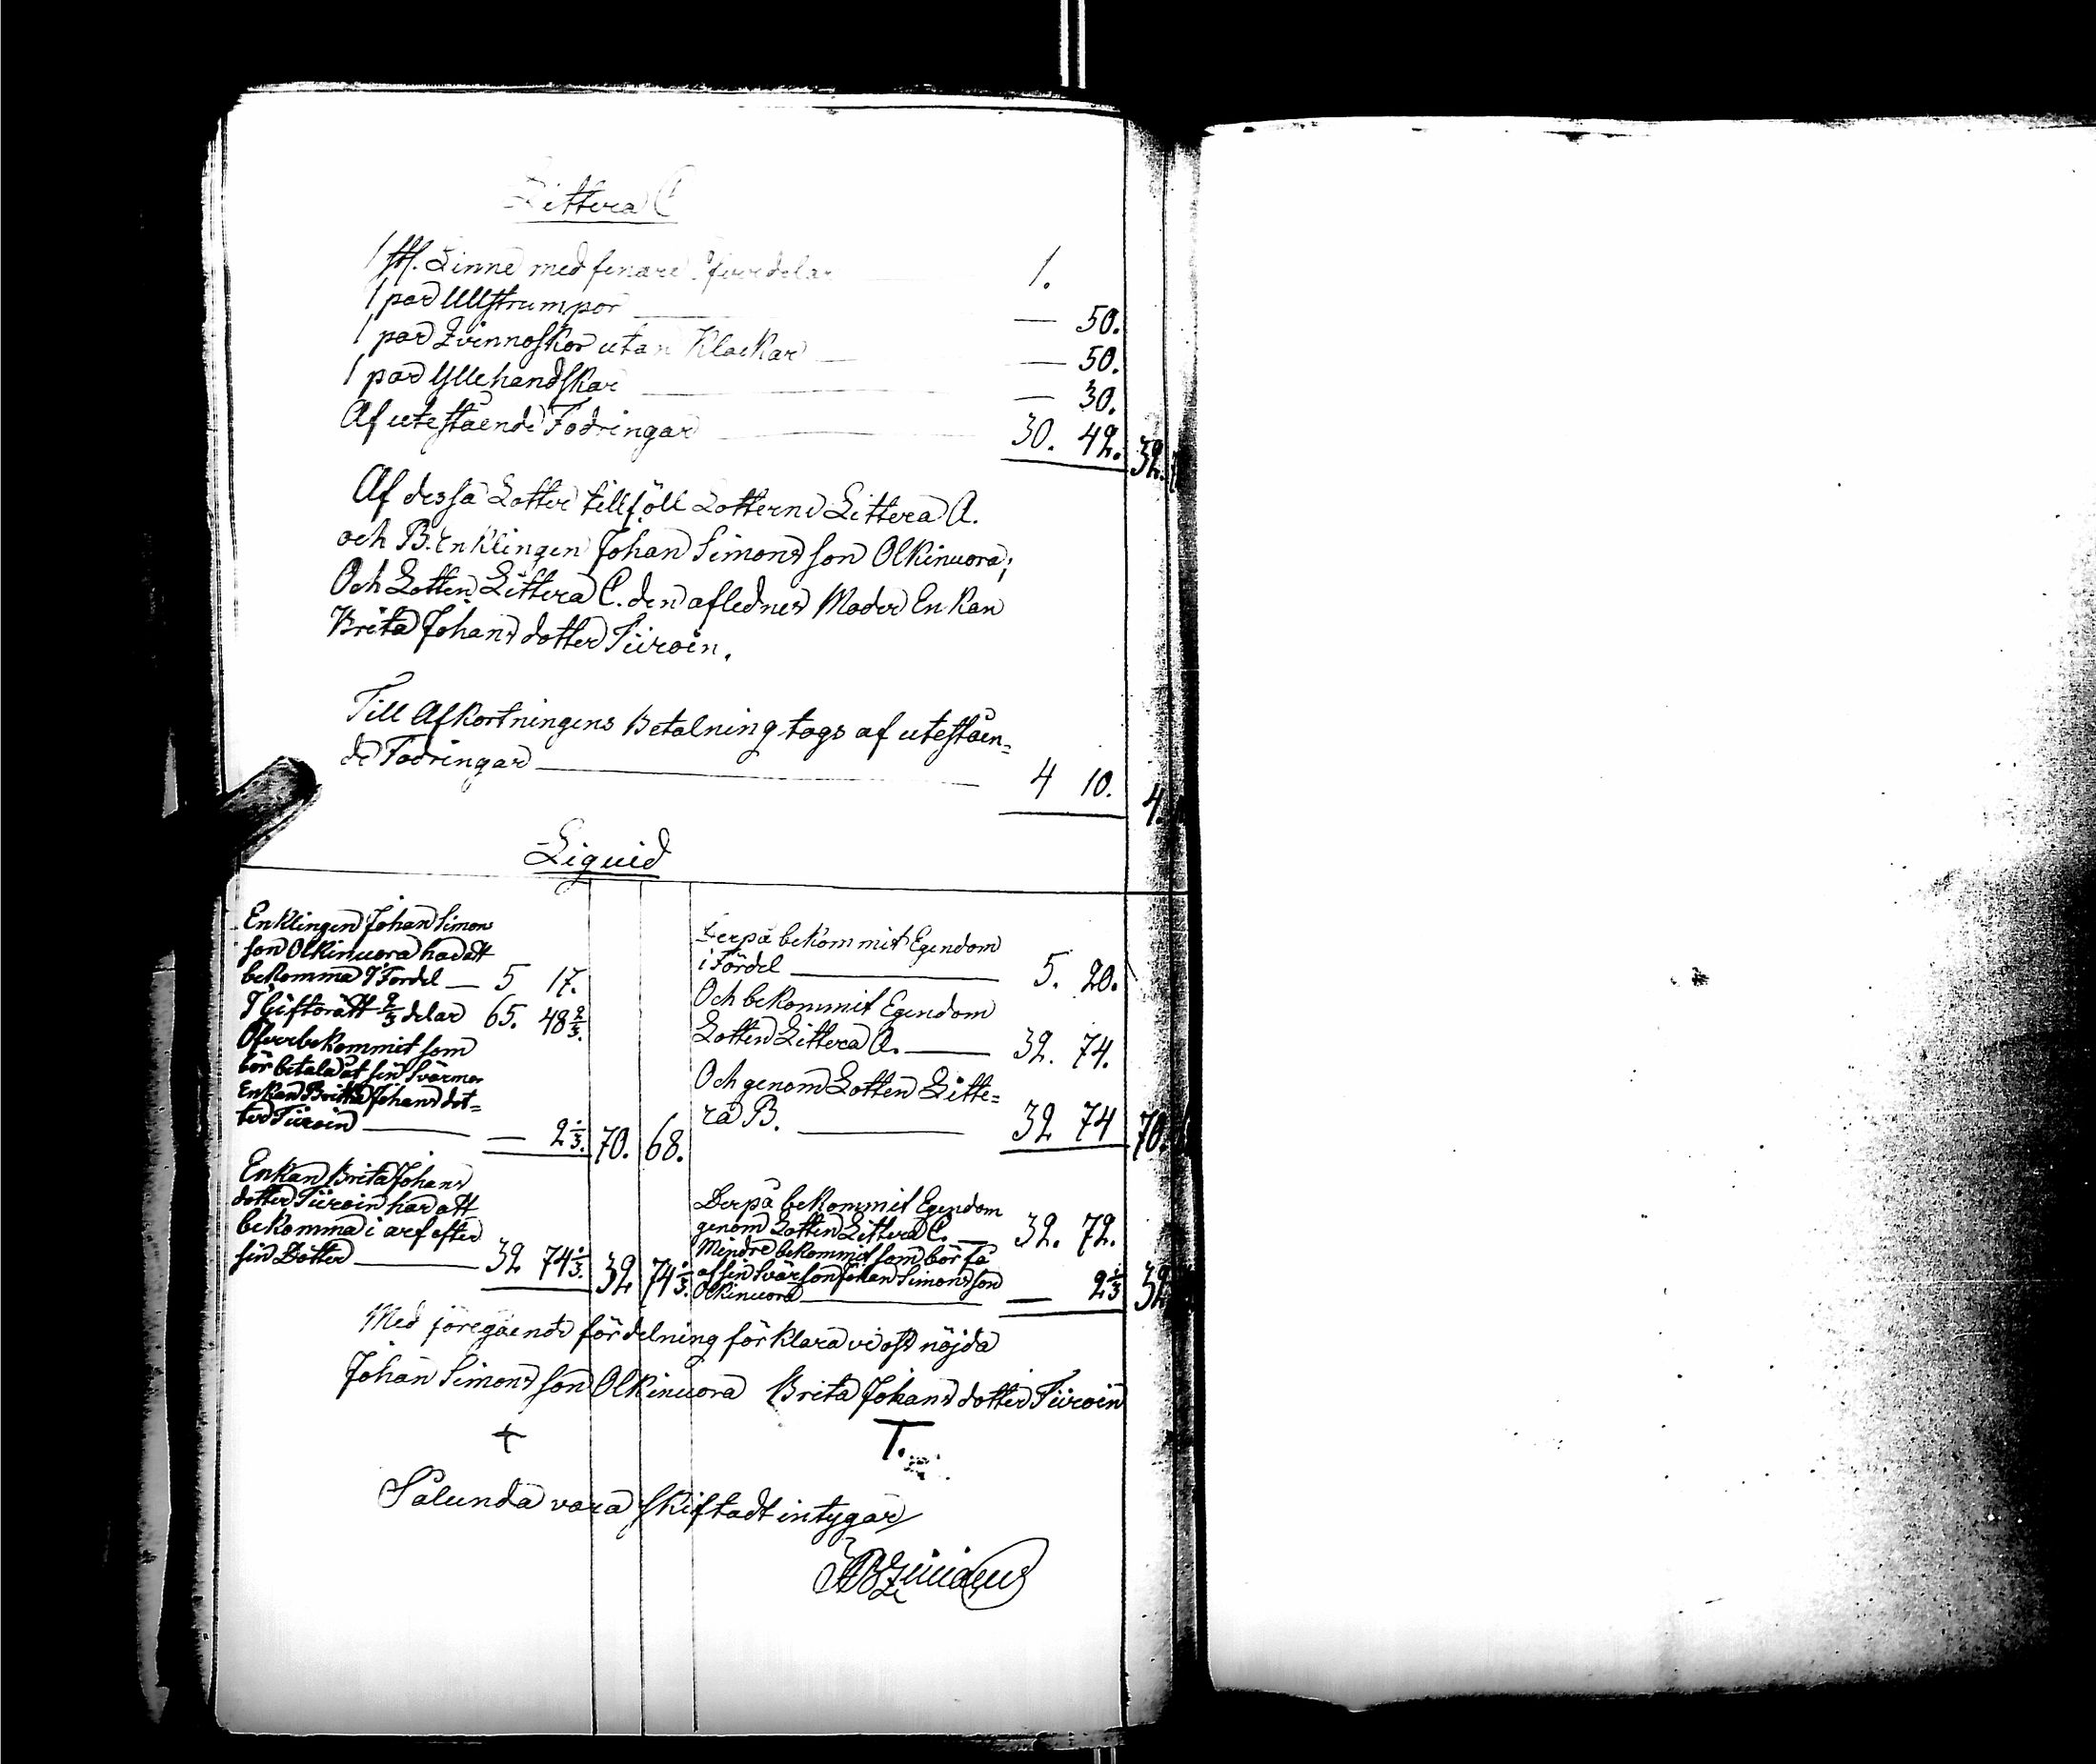 Littera C
1 st. Linne med finare öfverdelar 1.
1 par Ullstrumpor — 50.
1 par Qvinnoskor utan Klackar — 50.
1 par Yllehandskar — 30.
Af utestående Fodringar 30. 42. 32.
Af dessa Lotter tillföll Lotterne Littera A.
och B. Enklingen Johan Simons son Olkinuora;
Och Lotten Littera C. den aflednes Moder Enkan
Brita Johans dotter Tiiroin.
Till Afkortningens Betalning togs af uteståen=
de Fodringar 4 10. 4.
Liquid
Enklingen Johan Simons
son Olkinuora had att
bekomma i Fördel — 5 17.
I Giftorätt 2/3 delar 65. 48 2/3.
Öfverbekommit som
bör betala åt sin Svärmor
Enkan Britta Johans dot=
ter Tiiroin — 2 1/3. 70. 68.
Derpå bekommit Egendom
i Fördel 5. 20.
Och bekommit Egendom
Lotten Littera A. 32. 74.
Och genom Lotten Litte=
ra B. 32 74 70.
Enkan Brita Johans
dotter Tiiroin har att
bekomma i arf efter
sin Dotter 32 74 1/3. 32 74 1/3.
Derpå bekommit Egendom
genom Lotten Littera C. — 32. 72.
Mindre bekommit som bör få
af sin Svärson Johan Simons son
Olkinuora — 2 1/3 32
Med föregående fördelning förklara vi oss nöjda
Johan Simons son Olkinuora Brita Johans dotter Tiiroin
+ T.
Sålunda vara skiftadt intygar